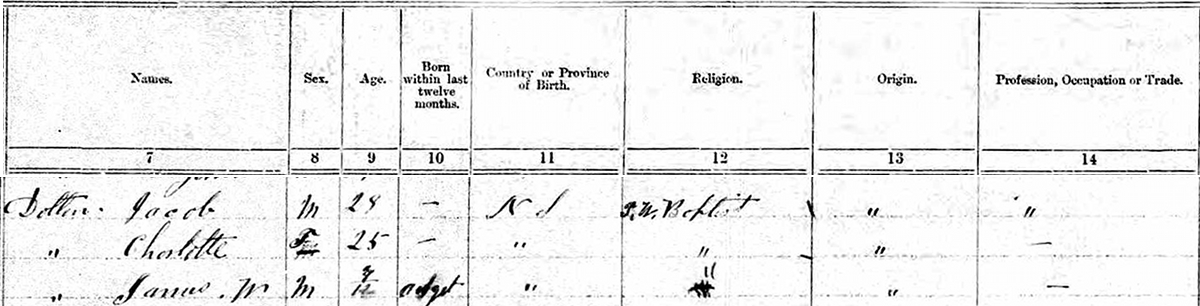 Names. Sex. Age. Born within last twelve months. Country or Province of Birth. Religion. Origin. Profession, Occupation or Trade.
7 8 9 10 11 12 13 14
Dolten Jacob M 28 – N S F.W. Baptist " "
" Chorlotte F 25 – " " " —
" James M " " " —